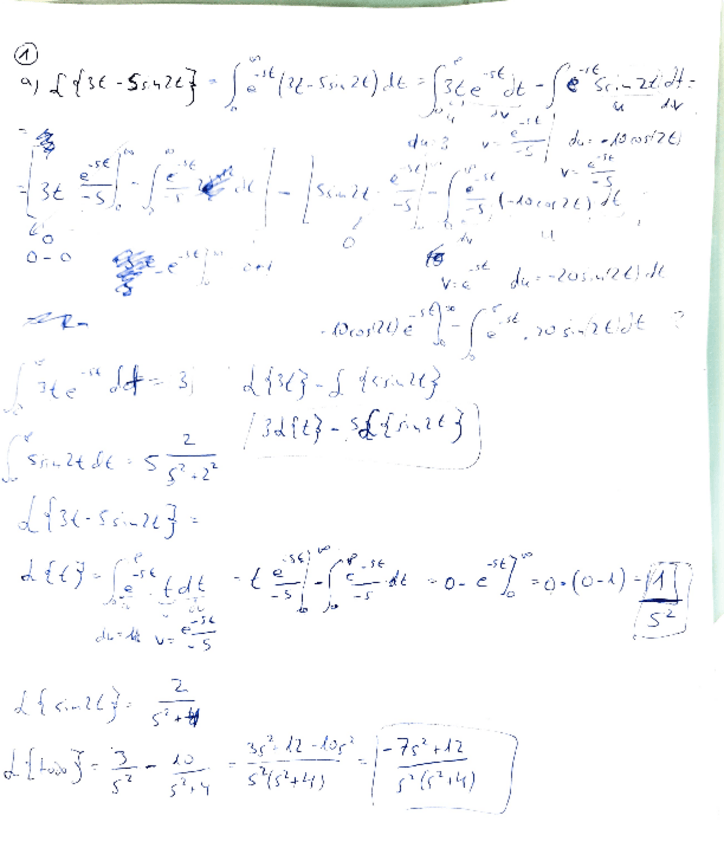 ①
a) ℒ{3t - 5sin2t} = ∫₀^∞ e^-st (3t - 5sin2t) dt = ∫₀^∞ 3t e^-st dt - ∫ e^-st 5sin2t dt =
u dv u dv
du = 3 v = e^-st/-s du = -10cos(2t)
v = e^-st/-s
= | 3t e^-st/-s |₀^∞ - ∫₀^∞ e^-st/-s dt | - | 5sin2t · e^-st/-s | - ∫₀^∞ e^-st/-s (-10cos2t) dt
0 0
0 - 0 - e^-st |₀^∞ 0+1 dv u
v = e^-st du = -20sin(2t) dt
-10cos(2t) e^-st ]₀^∞ - ∫₀^∞ e^-st · 20sin(2t) dt ?
∫₀^∞ 3t e^-st dt = 3, ℒ{3t} - ℒ{5sin2t}
3ℒ{t} - 5ℒ{sin2t}
∫₀^∞ 5sin2t dt = 5 2/(s²+2²)
ℒ{3t - 5sin2t} =
ℒ{t} = ∫₀^∞ e^-st · t dt = t e^-st/-s |₀^∞ - ∫₀^∞ e^-st/-s dt = 0 - e^-st ]₀^∞ = 0 - (0-1) = 1/s²
du = 1 v = e^-st/-s
ℒ{sin2t} = 2/(s²+4)
ℒ{todo} = 3/s² - 10/(s²+4) = (3s²+12-10s²)/(s²(s²+4)) = (-7s²+12)/(s²(s²+4))